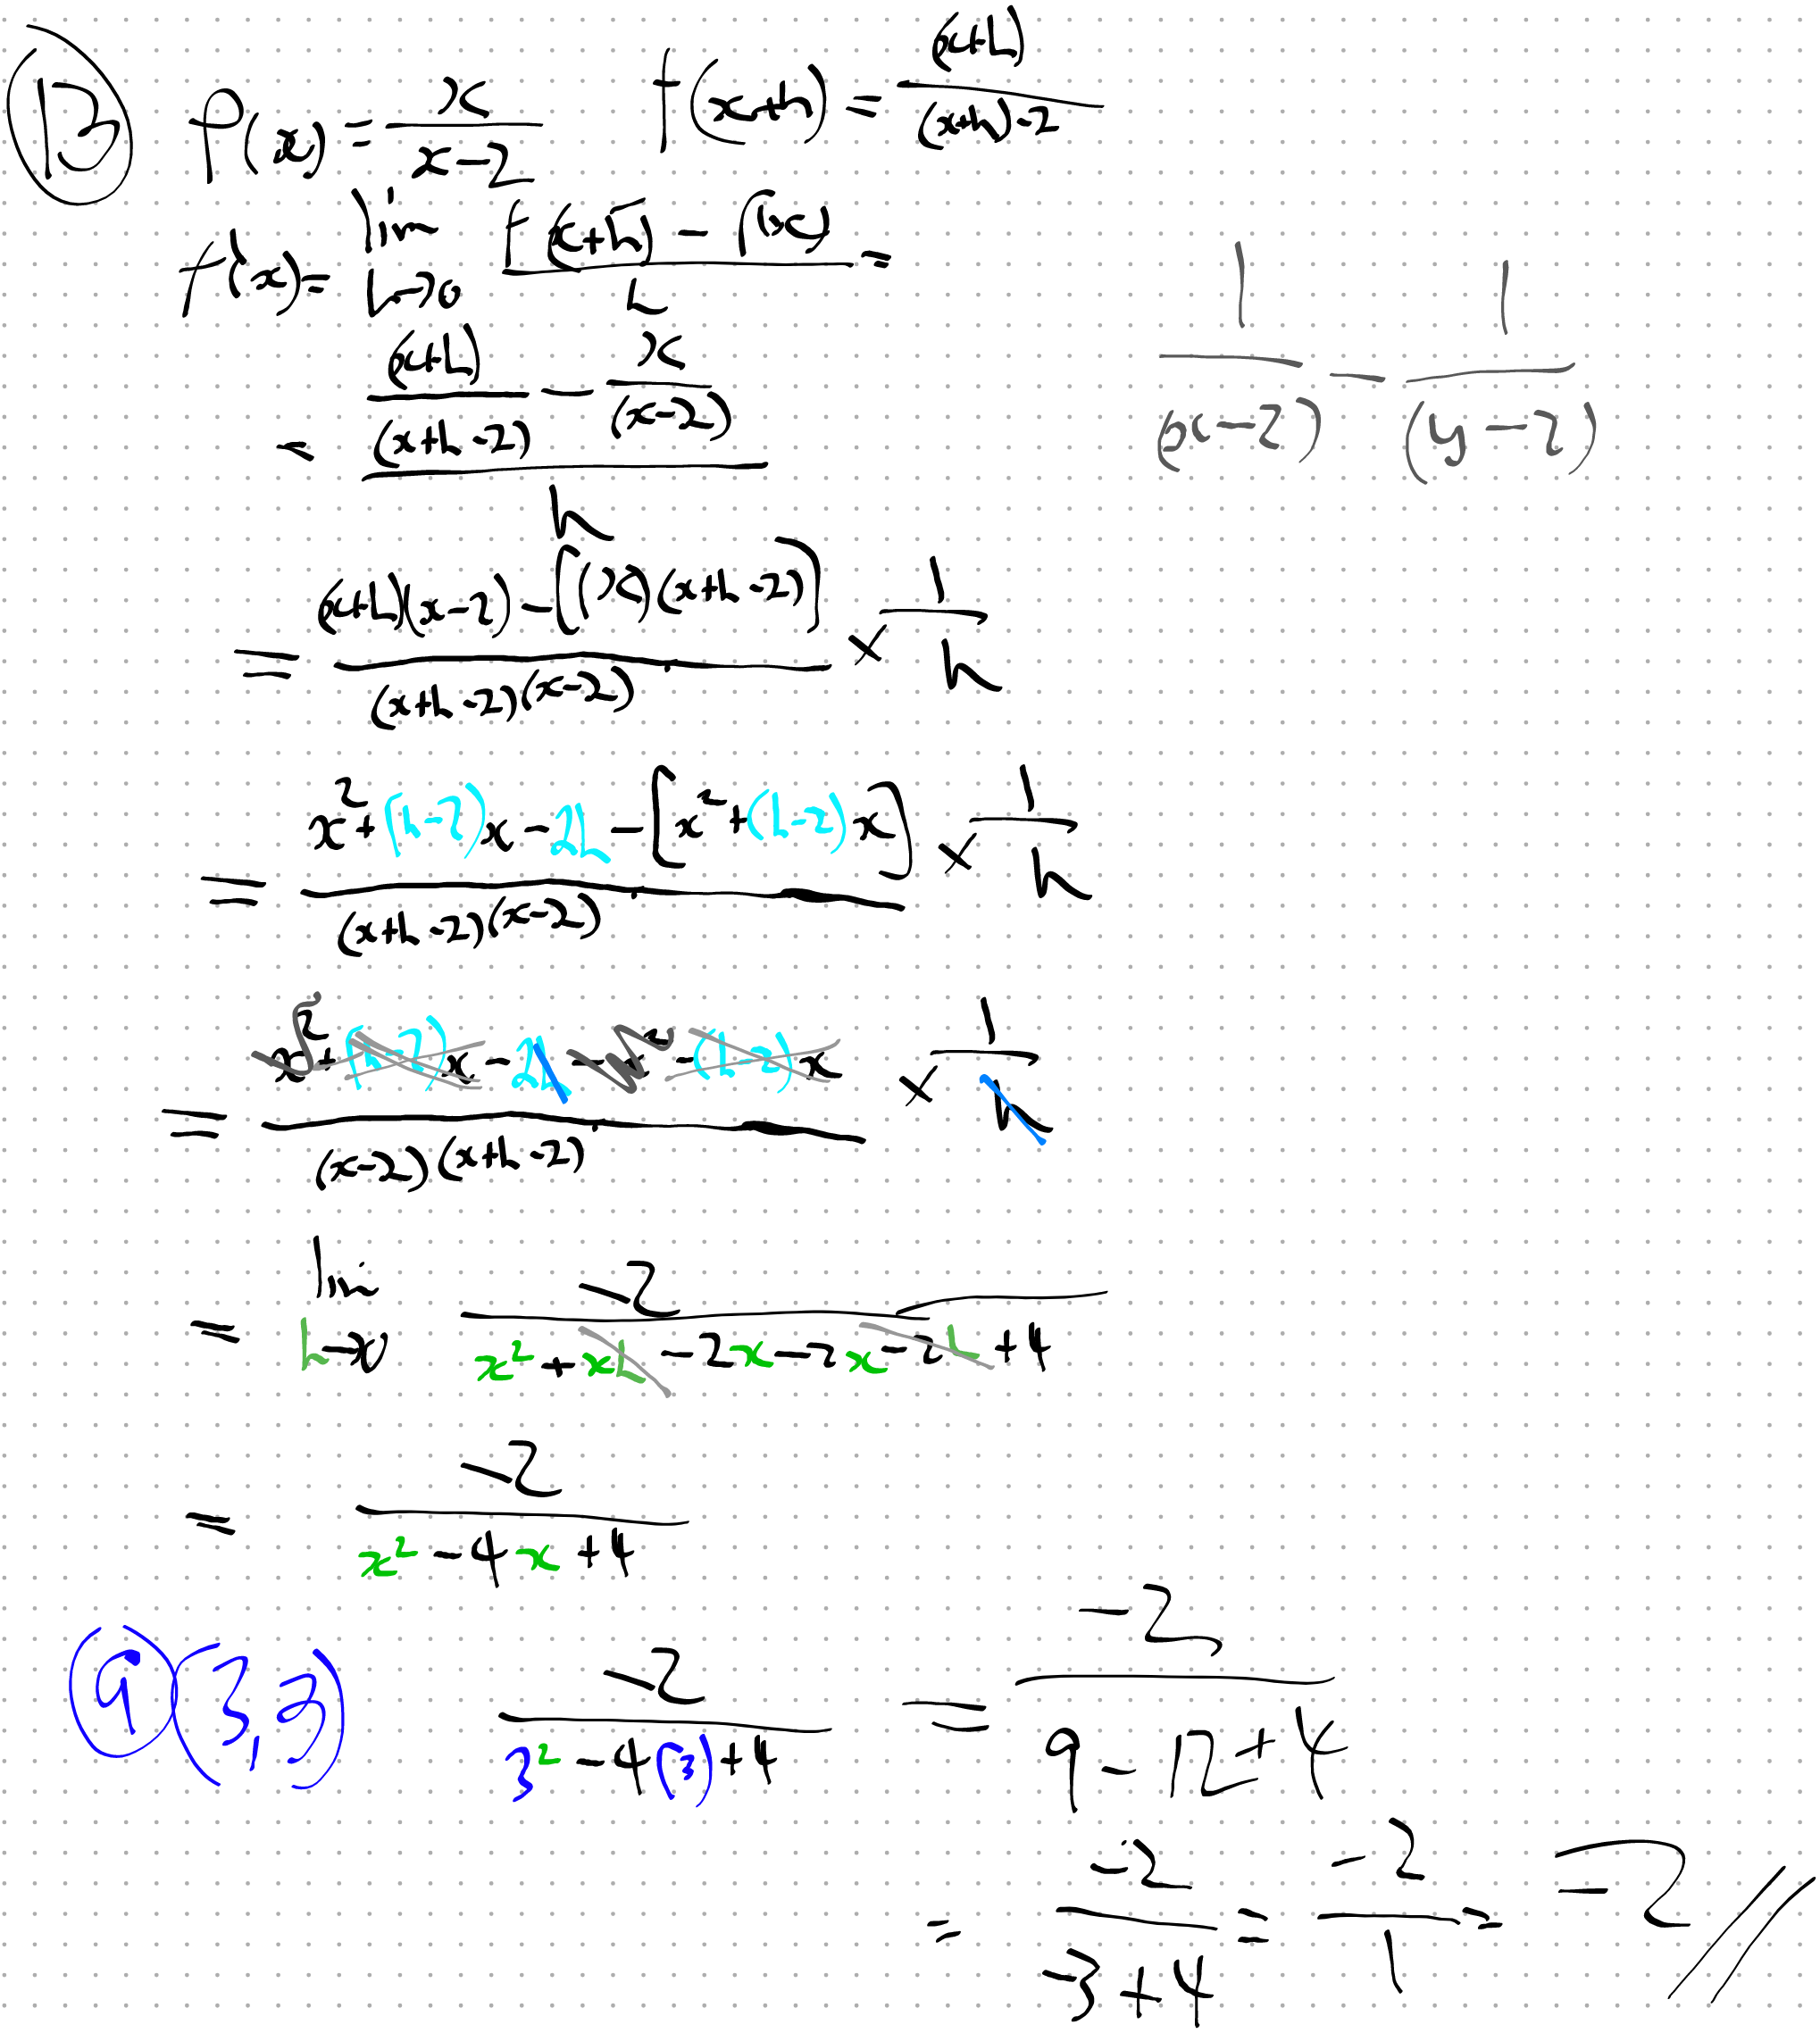 13 f(x) = x/(x-2) f(x+h) = (x+h)/((x+h)-2)
f'(x) = lim h→0 (f(x+h) - f(x))/h =
1/(x-2) - 1/(y-2)
= ((x+h)/(x+h-2) - x/(x-2))/h
= ((x+h)(x-2) - [(x)(x+h-2)])/((x+h-2)(x-2)) × 1/h
= (x² + (h-2)x - 2h - [x² + (h-2)x])/((x+h-2)(x-2)) × 1/h
= (x² + (h-2)x - 2h - x² - (h-2)x)/((x-2)(x+h-2)) × 1/h
= lim h→0 -2/(x² + xh - 2x - 2x - 2h + 4)
= -2/(x² - 4x + 4)
(3,3) -2/(3² - 4(3) + 4) = -2/(9 - 12 + 4)
= -2/(-3+4) = -2/1 = -2 //